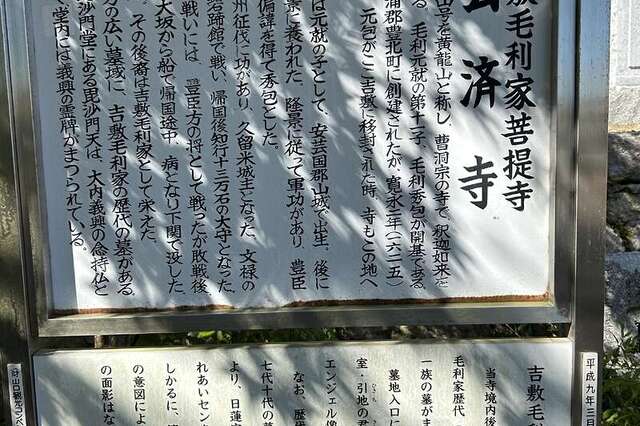 敷毛利家菩提寺
済寺
山号を黄龍山と称し、曹洞宗の寺で、釈迦如来を
る。毛利元就の第十一子、毛利秀包が開基である。
浦郡豊北町に創建されたが、寛永二年(一六二五)
元包がここ吉敷に移封された時、寺もこの地へ
は元就の子として、安芸国郡山城で出生、後に
景に養われた。隆景に従って軍功があり、豊臣
偏諱を得て秀包とした。
州征伐に功があり、久留米城主となった。文禄の
碧蹄館で戦い、帰国後知行十三万石の大守となった。
戦いには、豊臣方の将として戦ったが敗戦後、
大坂から船で帰国途中、病となり下関で没した。
。その後裔は吉敷毛利家として栄えた。
方の広い墓域に、吉敷毛利家の歴代の墓がある。
沙門堂にある毘沙門天は、大内義興の念持仏と
堂内には義興の霊牌がまつられている。
吉敷毛利
当寺境内後
毛利家歴代
一族の墓がま
墓地入口に
室・引地の君
エンジェル像
なお、歴代
七代十代の墓
より、日蓮宗
れあいセン
しかるに、
の意図によ
の面影はな
平成九年三月